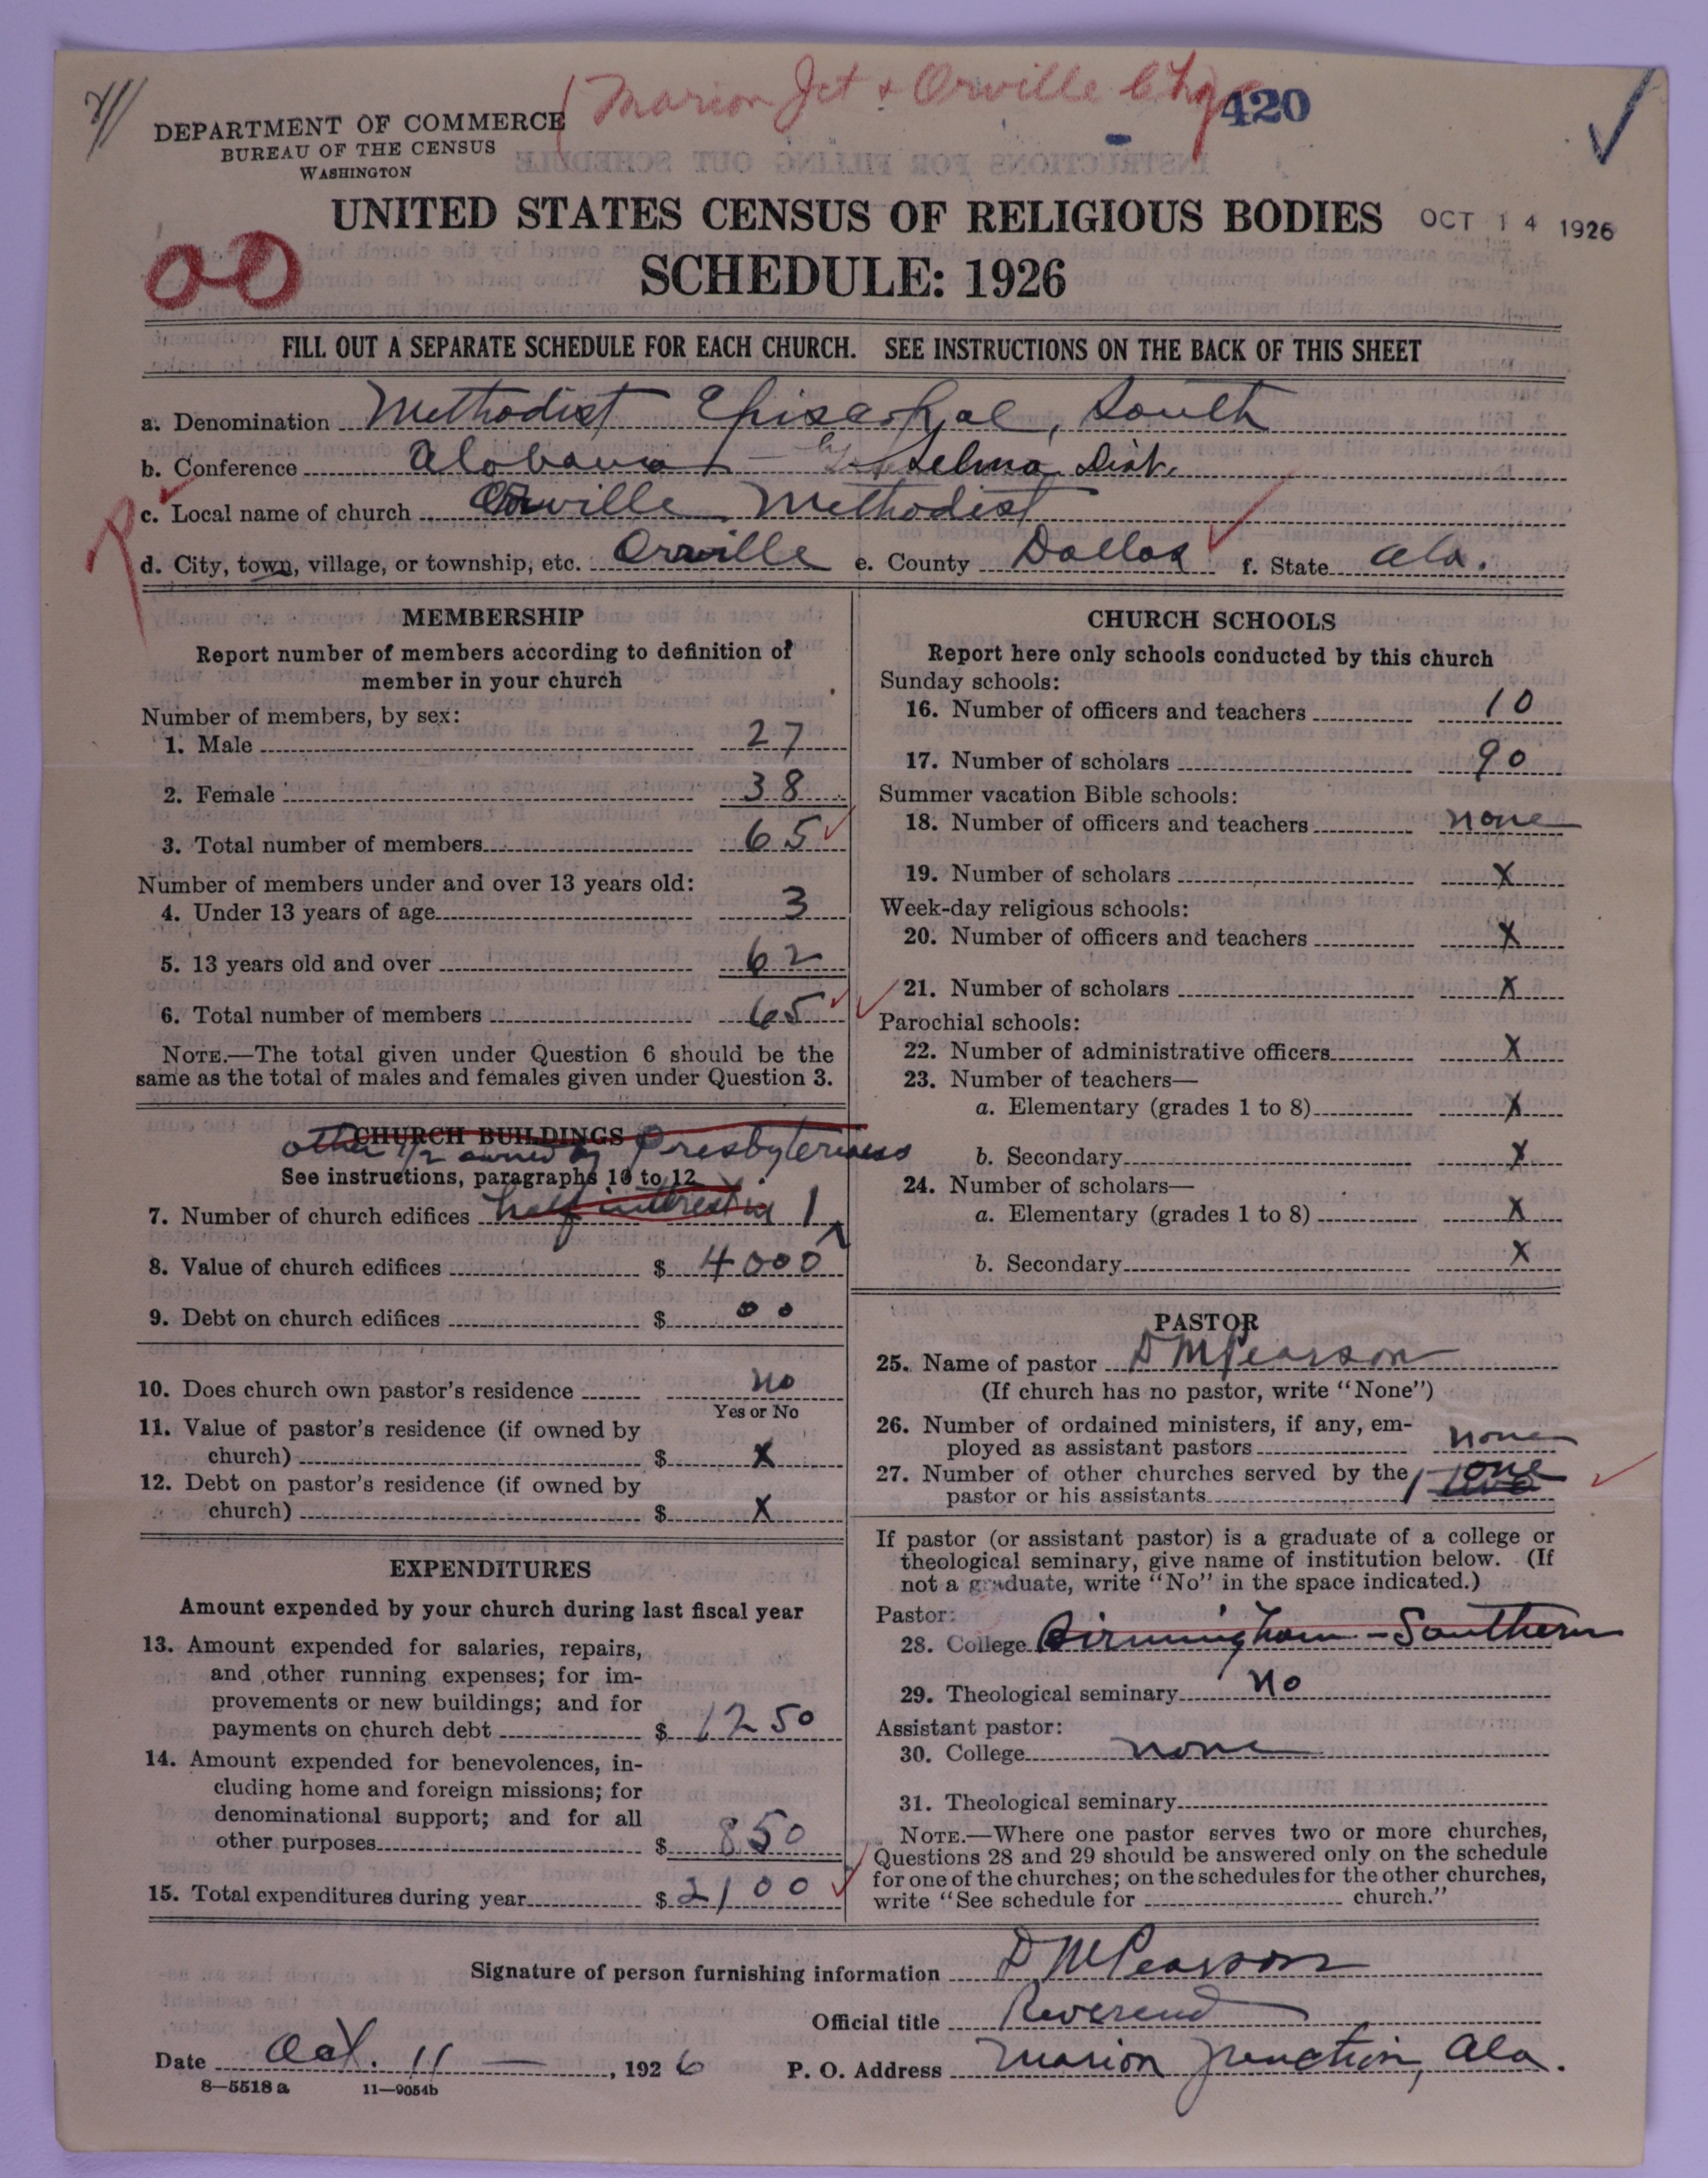 Marion Jct & Orville Chg
420
DEPARTMENT OF COMMERCE
BUREAU OF THE CENSUS
WASHINGTON
UNITED STATES CENSUS OF RELIGIOUS BODIES
OCT 14 1926
SCHEDULE: 1926
00
FILL OUT A SEPARATE SCHEDULE FOR EACH CHURCH. SEE INSTRUCTIONS ON THE BACK OF THIS SHEET
a. Denomination Methodist Episcopal, South
b. Conference Alabama - Selma Dist.
c. Local name of church Orville Methodist
d. City, town, village, or township, etc. Orville e. County Dallas f. State Ala.
MEMBERSHIP
Report number of members according to definition of
member in your church
Number of members, by sex:
1. Male 27
2. Female 38
3. Total number of members 65
Number of members under and over 13 years old:
4. Under 13 years of age 3
5. 13 years old and over 62
6. Total number of members 65
NOTE.—The total given under Question 6 should be the
same as the total of males and females given under Question 3.
CHURCH BUILDINGS
other 1/2 owned by Presbyterians
See instructions, paragraphs 10 to 12
7. Number of church edifices half interest in 1
8. Value of church edifices $ 4000
9. Debt on church edifices $ 00
10. Does church own pastor's residence no
Yes or No
11. Value of pastor's residence (if owned by
church) $ X
12. Debt on pastor's residence (if owned by
church) $ X
EXPENDITURES
Amount expended by your church during last fiscal year
13. Amount expended for salaries, repairs,
and other running expenses; for im-
provements or new buildings; and for
payments on church debt $ 1250
14. Amount expended for benevolences, in-
cluding home and foreign missions; for
denominational support; and for all
other purposes $ 850
15. Total expenditures during year $ 2100
CHURCH SCHOOLS
Report here only schools conducted by this church
Sunday schools:
16. Number of officers and teachers 10
17. Number of scholars 90
Summer vacation Bible schools:
18. Number of officers and teachers none
19. Number of scholars X
Week-day religious schools:
20. Number of officers and teachers X
21. Number of scholars X
Parochial schools:
22. Number of administrative officers X
23. Number of teachers—
a. Elementary (grades 1 to 8) X
b. Secondary X
24. Number of scholars—
a. Elementary (grades 1 to 8) X
b. Secondary X
PASTOR
25. Name of pastor D M Pearson
(If church has no pastor, write "None")
26. Number of ordained ministers, if any, em-
ployed as assistant pastors none
27. Number of other churches served by the
pastor or his assistants one
If pastor (or assistant pastor) is a graduate of a college or
theological seminary, give name of institution below. (If
not a graduate, write "No" in the space indicated.)
Pastor:
28. College Birmingham-Southern
29. Theological seminary No
Assistant pastor:
30. College none
31. Theological seminary
NOTE.—Where one pastor serves two or more churches,
Questions 28 and 29 should be answered only on the schedule
for one of the churches; on the schedules for the other churches,
write "See schedule for church."
Signature of person furnishing information D M Pearson
Official title Reverend
Date Oct. 11 —, 1926 P. O. Address Marion Junction, Ala.
8—5518 a 11—9054b